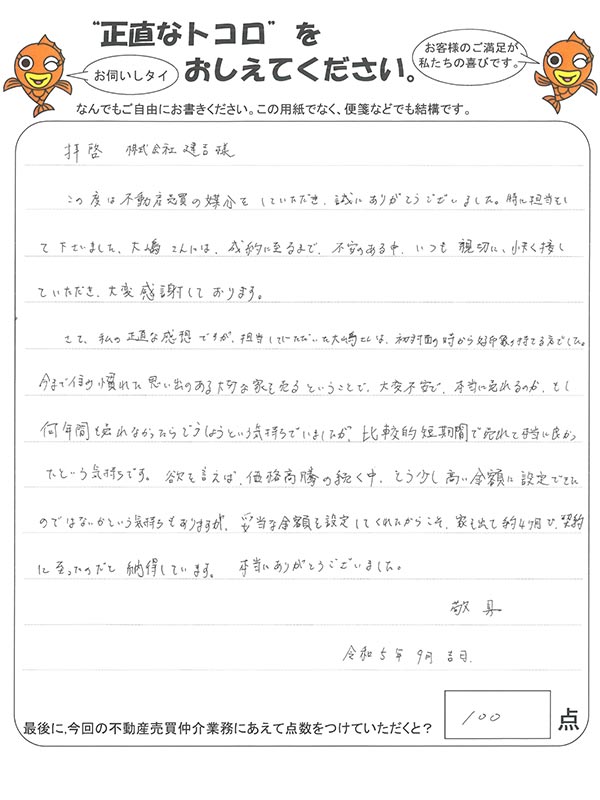 "正直なトコロ"を
おしえてください。
お伺いしタイ
お客様のご満足が
私たちの喜びです。
なんでもご自由にお書きください。この用紙でなく、便箋などでも結構です。
拝啓 株式会社 建吉様
この度は不動産売買の媒介をしていただき、誠にありがとうございました。特に担当をし
て下さいました、大嶋さんには、成約に至るまで、不安のある中、いつも親切に、快く接し
ていただき、大変感謝しております。
さて、私の正直な感想ですが、担当していただいた大嶋さんは、初対面の時から好印象の持てる方でした。
今まで住み慣れた思い出のある大切な家を売るということで、大変不安で、本当に売れるのか、もし
何年間も売れなかったらどうしようという気持ちでいましたが、比較的短期間で売れて本当に良かっ
たという気持ちです。欲を言えば、価格高騰の続く中、もう少し高い金額に設定できた
のではないかという気持ちもありますが、妥当な金額を設定してくれたからこそ、家を出て約4ヶ月で、契約
に至ったのだと納得しています。本当にありがとうございました。
敬具
令和5年9月吉日.
最後に、今回の不動産売買仲介業務にあえて点数をつけていただくと? 100 点